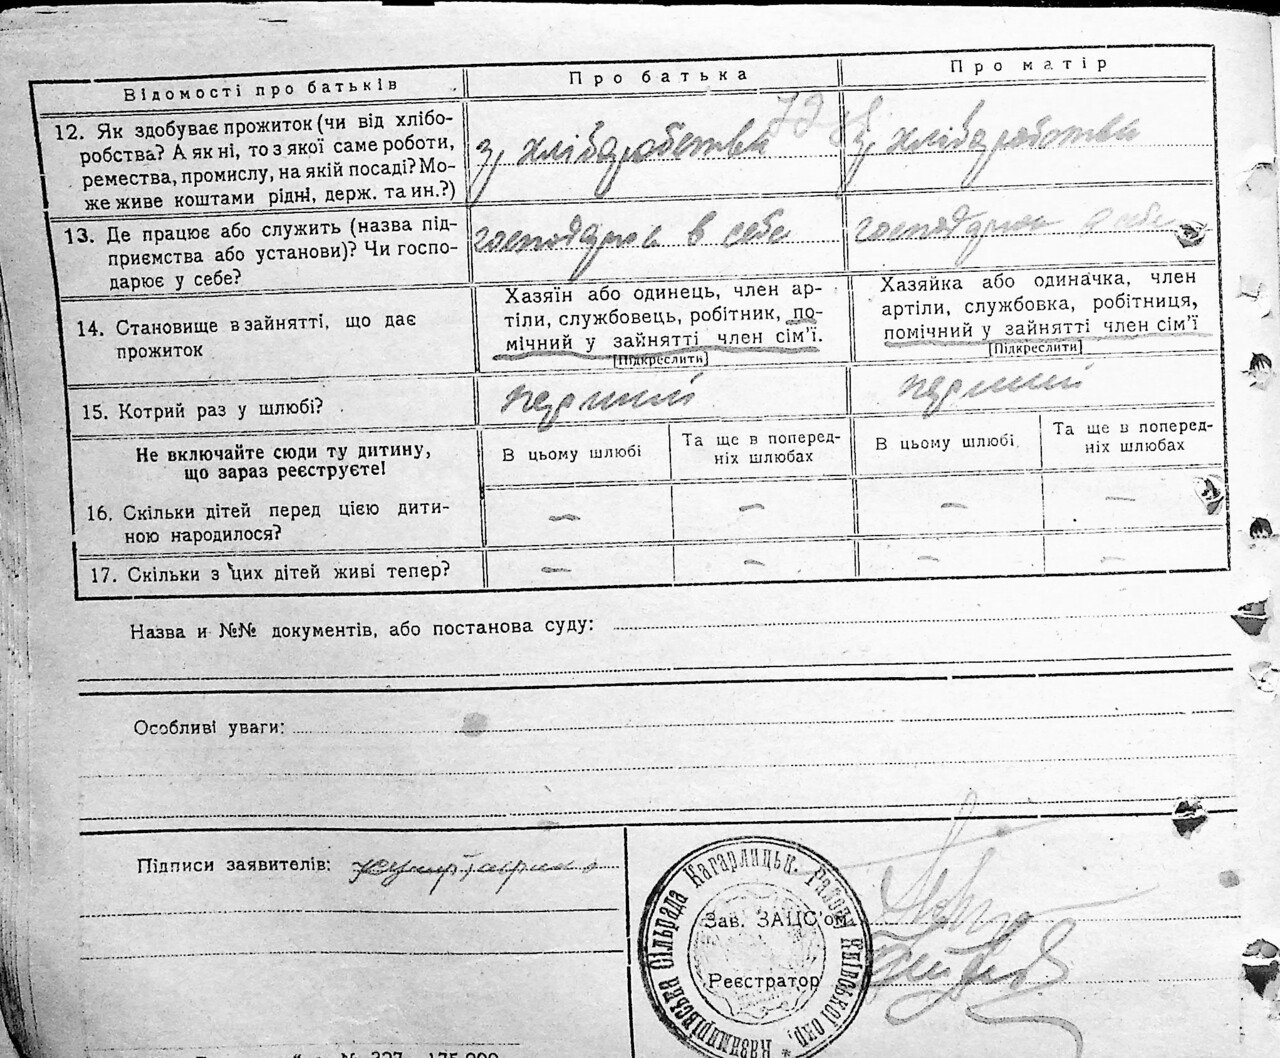 Відомості про батьків
Про батька
Про матір
12. Як здобуває прожиток (чи від хлібо-
робства? А як ні, то з якої саме роботи,
ремества, промислу, на якій посаді? Мо-
же живе коштами рідні, держ. та ин.?)
з хліборобства
з хліборобства
13. Де працює або служить (назва під-
приємства або установи)? Чи госпо-
дарює у себе?
господарює в себе
господарює в себе
14. Становище в зайнятті, що дає
прожиток
Хазяїн або одинець, член ар-
тіли, службовець, робітник, по-
мічний у зайнятті член сім'ї.
[Підкреслити]
Хазяйка або одиначка, член
артіли, службовка, робітниця,
помічний у зайнятті член сім'ї
[Підкреслити]
15. Котрий раз у шлюбі?
перший
перший
Не включайте сюди ту дитину,
що зараз реєструєте!
В цьому шлюбі
Та ще в поперед-
ніх шлюбах
В цьому шлюбі
Та ще в поперед-
ніх шлюбах
16. Скільки дітей перед цією дити-
ною народилося?
— — — —
17. Скільки з цих дітей живі тепер?
— — — —
Назва и №№ документів, або постанова суду:
Особливі уваги:
Підписи заявителів:
Зав. ЗАЦС'ом
Реєстратор
Сільрада Кагарлицьк. Району Київської окр.
№ 327 175.000